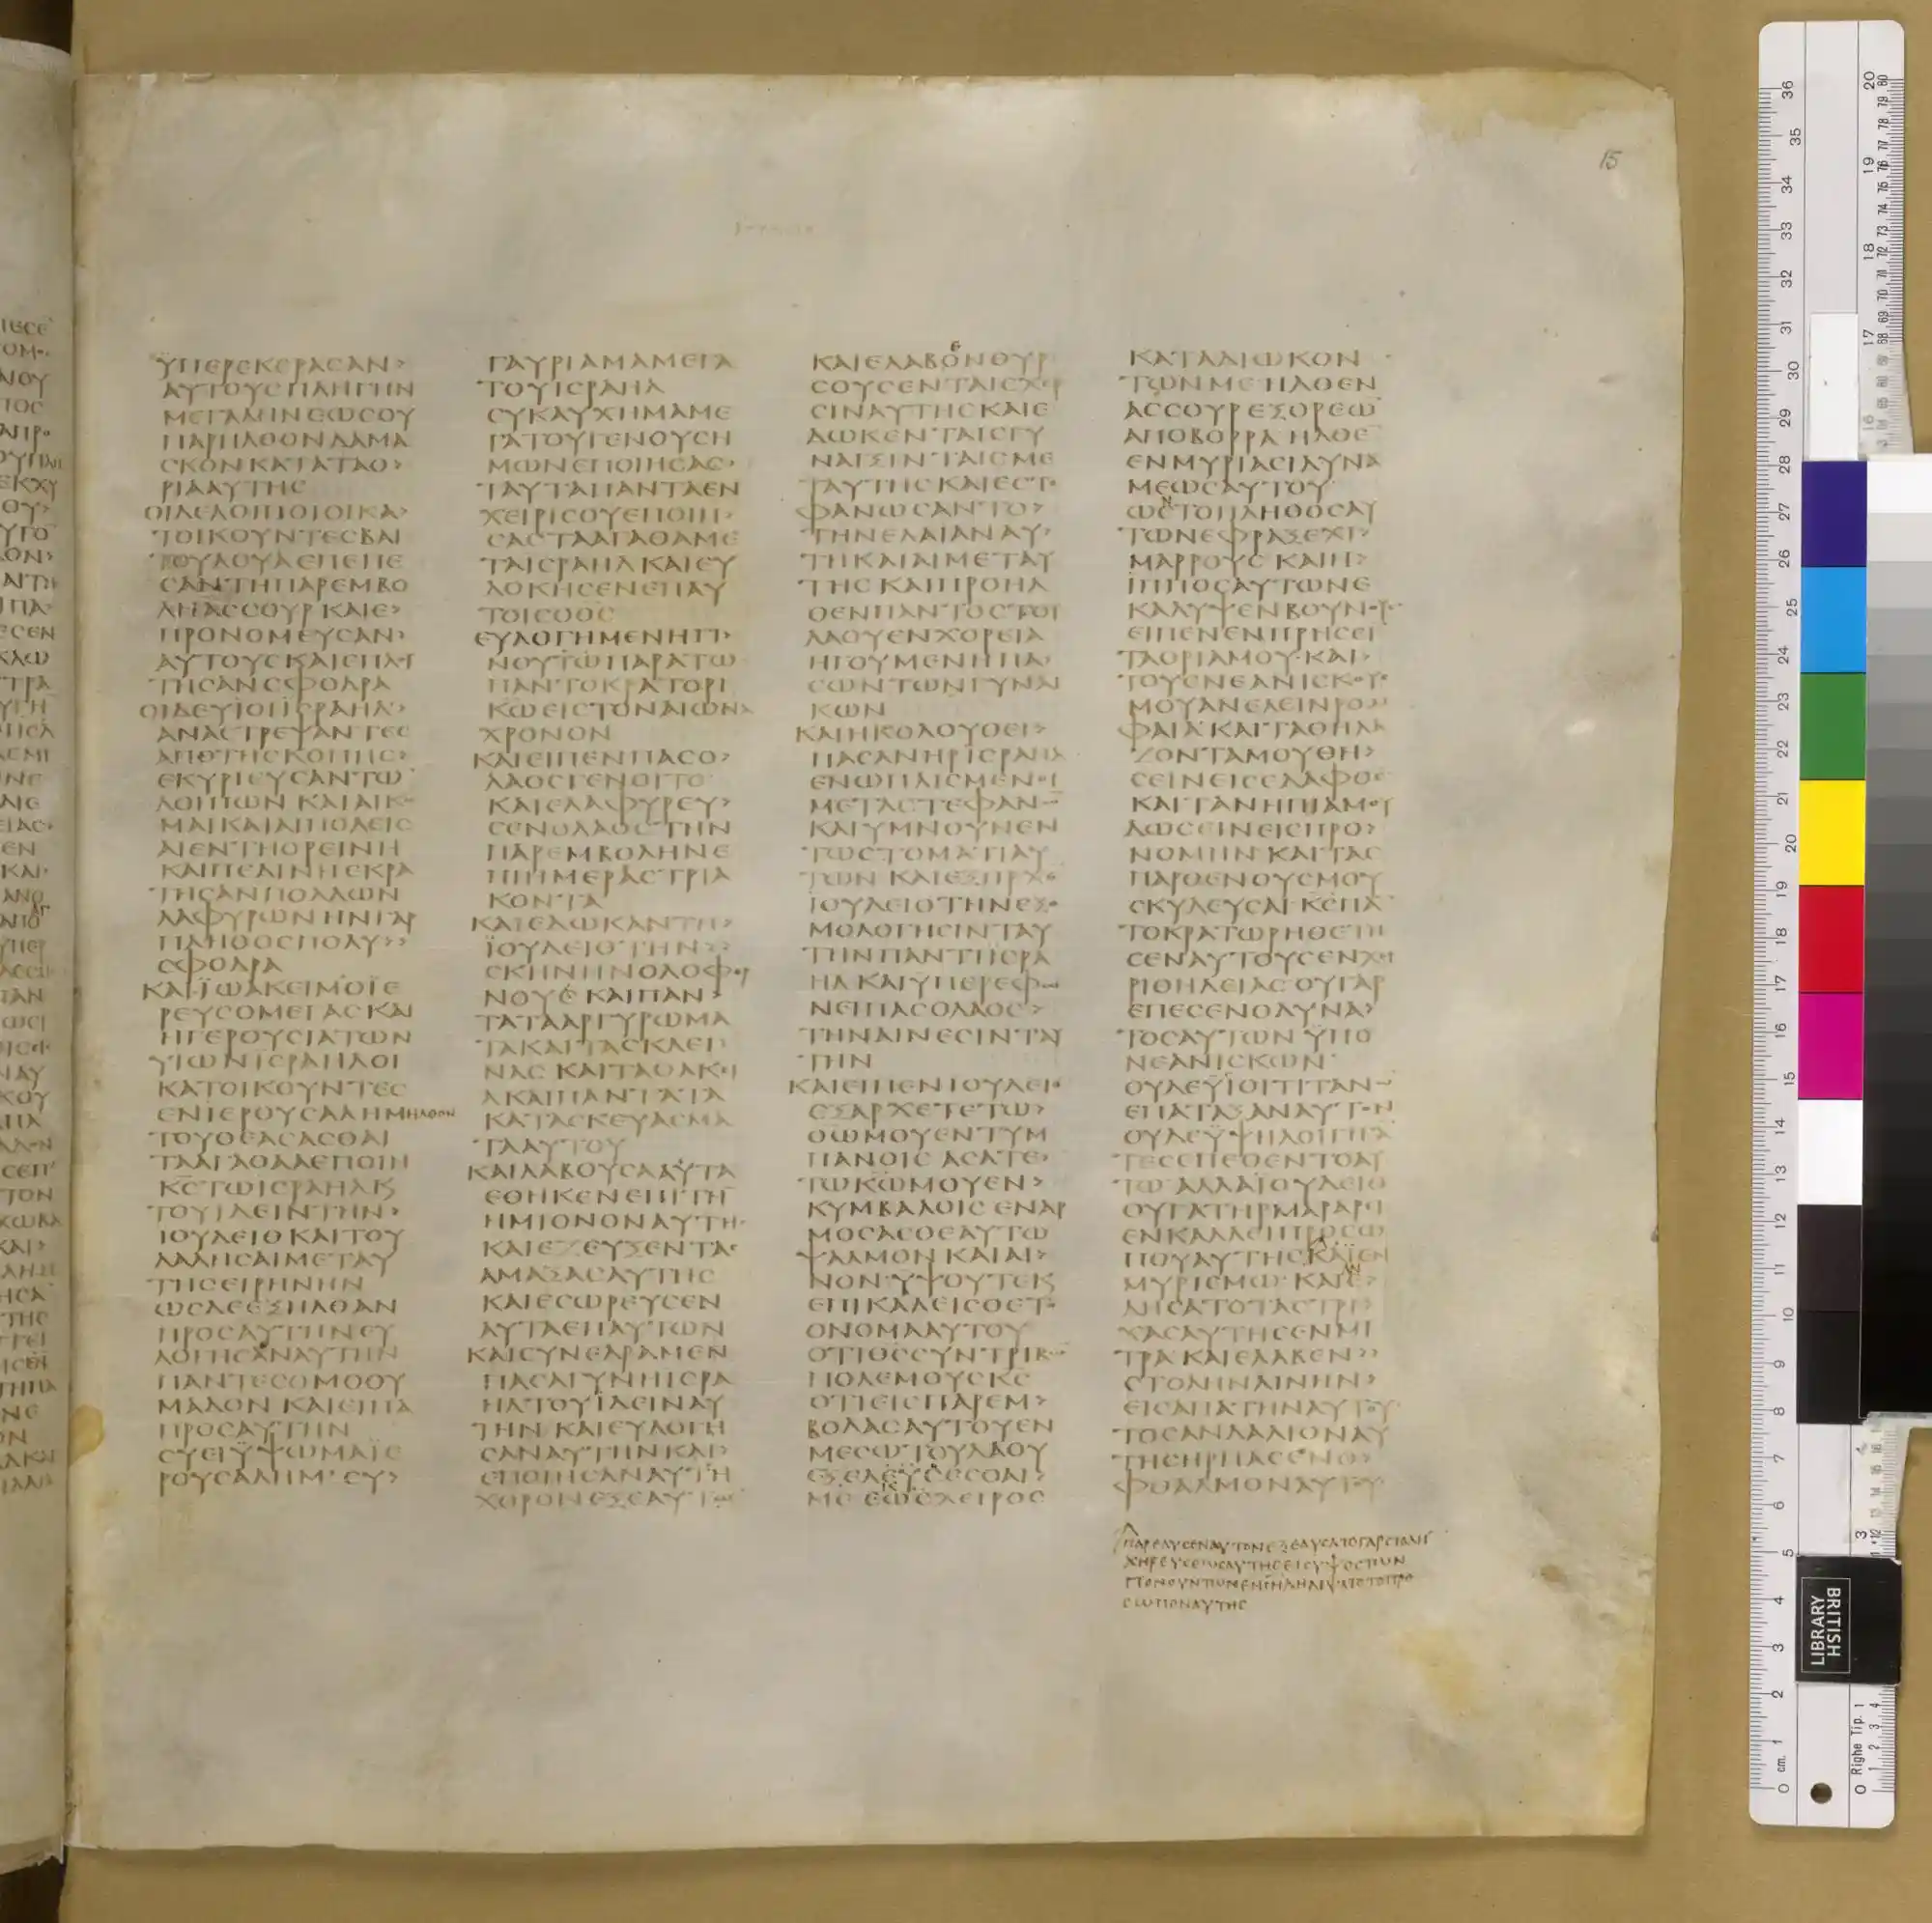 15
ΫΠΕΡΕΚΕΡΑCΑΝ>
ΑΥΤΟΥCΠΛΗΓΗΝ
ΜΕΓΑΛΗΝΕΩCΟΥ
ΠΑΡΗΛΘΟΝΔΑΜΑ
CΚΟΝΚΑΙΤΑΤΑΟ>
ΡΙΑΑΥΤΗC
ΟΙΔΕΛΟΙΠΟΙΟΙΚΑ>
ΤΟΙΚΟΥΝΤΕCΒΑΙ
ΤΟΥΛΟΥΑΕΠΕΠΕ
CΑΝΤΗΠΑΡΕΜΒΟ
ΛΗΑCCΟΥΡΚΑΙΕ>
ΠΡΟΝΟΜΕΥCΑΝ>
ΑΥΤΟΥCΚΑΙΕΠΛΟΥ
ΤΗCΑΝCΦΟΔΡΑ
ΟΙΔΕΥΙΟΙΪCΡΑΗΛ>
ΑΝΑCΤΡΕΨΑΝΤΕC
ΑΠΟΤΗCΚΟΠΗC>
ΕΚΥΡΙΕΥCΑΝΤΩ̅
ΛΟΙΠΩΝΚΑΙΑΙΚΩ
ΜΑΙΚΑΙΑΙΠΟΛΕΙC
ΑΙΕΝΤΗΟΡΕΙΝΗ
ΚΑΙΠΕΔΙΝΗΕΚΡΑ
ΤΗCΑΝΠΟΛΛΩΝ
ΛΑΦΥΡΩΝΗΝΓΑΡ
ΠΛΗΘΟCΠΟΛΥ>>
CΦΟΔΡΑ
ΚΑΙΪΩΑΚΕΙΜΟΪΕ
ΡΕΥCΟΜΕΓΑCΚΑΙ
ΗΓΕΡΟΥCΙΑΤΩΝ
ΥΙΩΝΙCΡΑΗΛΟΙ
ΚΑΤΟΙΚΟΥΝΤΕC
ΕΝΙΕΡΟΥCΑΛΗΜΗΛΘΟΝ
ΤΟΥΘΕΑCΑCΘΑΙ
ΤΑΑΓΑΘΑΑΕΠΟΙΗ
ΚC̅ΤΩΙCΡΑΗΛΚϚ
ΤΟΥΙΔΕΙΝΤΗΝ>
ΙΟΥΔΕΙΘΚΑΙΤΟΥ
ΛΑΛΗCΑΙΜΕΤΑΥ
ΤΗCΕΙΡΗΝΗΝ
ΩCΔΕΕΞΗΛΘΑΝ
ΠΡΟCΑΥΤΗΝΕΥ
ΛΟΓΗCΑΝΑΥΤΗΝ
ΠΑΝΤΕCΟΜΟΘΥ
ΜΑΔΟΝΚΑΙΕΙΠΑ
ΠΡΟCΑΥΤΗΝ
CΥΕΙΫΨΩΜΑΪΕ
ΡΟΥCΑΛΗΜ·CΥ>
ΓΑΥΡΙΑΜΑΜΕΓΑ
ΤΟΥΙCΡΑΗΛ
CΥΚΑΥΧΗΜΑΜΕ
ΓΑΤΟΥΓΕΝΟΥCΗ
ΜΩΝΕΠΟΙΗCΑC>
ΤΑΥΤΑΠΑΝΤΑΕΝ
ΧΕΙΡΙCΟΥΕΠΟΙΗ>
CΑCΤΑΑΓΑΘΑΜΕ
ΤΑΙCΡΑΗΛΚΑΙΕΥ
ΔΟΚΗCΕΝΕΠΑΥ
ΤΟΙCΟΘC̅
ΕΥΛΟΓΗΜΕΝΗΓΙ>
ΝΟΥΤΩΠΑΡΑΤΩ
ΠΑΝΤΟΚΡΑΤΟΡΙ
ΚΩ̅ΕΙCΤΟΝΑΙΩΝΑ
ΧΡΟΝΟΝ
ΚΑΙΕΙΠΕΝΠΑCΟ>
ΛΑΟCΓΕΝΟΙΤΟ
ΚΑΙΕΛΑΦΥΡΕΥ>
CΕΝΟΛΑΟCΤΗΝ
ΠΑΡΕΜΒΟΛΗΝΕ
ΠΗΜΕΡΑCΤΡΙΑ
ΚΟΝΤΑ
ΚΑΙΕΔΩΚΑΝΤΗ>
ΪΟΥΔΕΙΘΤΗΝ>>
CΚΗΝΗΝΟΛΟΦΕΡ
ΝΟΥCΚΑΙΠΑΝ>
ΤΑΤΑΑΡΓΥΡΩΜΑ
ΤΑΚΑΙΤΑCΚΛΕΙ
ΝΑCΚΑΙΤΑΟΛΚΙ
ΑΚΑΙΠΑΝΤΑΤΑ
ΚΑΤΑCΚΕΥΑCΜΑ
ΤΑΑΥΤΟΥ
ΚΑΙΛΑΒΟΥCΑΑΥΤΑ
ΕΘΗΚΕΝΕΠΙΤΗ̅
ΗΜΙΟΝΟΝΑΥΤΗC
ΚΑΙΕΖΕΥΞΕΝΤΑC
ΑΜΑΞΑCΑΥΤΗC
ΚΑΙΕCΩΡΕΥCΕΝ
ΑΥΤΑΕΠΑΥΤΩΝ
ΚΑΙCΥΝΕΔΡΑΜΕΝ
ΠΑCΑΓΥΝΗΙCΡΑ
ΗΛΤΟΥΪΔΕΙΝΑΥ
ΤΗΝΚΑΙΕΥΛΟΓΗ
CΑΝΑΥΤΗΝΚΑΙ>
ΕΠΟΙΗCΑΝΑΥΤΗ
ΧΟΡΟΝΕΞΕΑΥΤΩ̅
ΚΑΙΕΛΑΒΟΝΘΥΡ
CΟΥCΕΝΤΑΙCΧΕΡ
CΙΝΑΥΤΗCΚΑΙΕ
ΔΩΚΕΝΤΑΙCΓΥ
ΝΑΙΞΙΝΤΑΙCΜΕ
ΤΑΥΤΗCΚΑΙΕCΤΕ
ΦΑΝΩCΑΝΤΟ>
ΤΗΝΕΛΑΙΑΝΑΥ>
ΤΗΚΑΙΑΙΜΕΤΑΥ
ΤΗCΚΑΙΠΡΟΗΛ
ΘΕΝΠΑΝΤΟCΤΟΥ
ΛΑΟΥΕΝΧΟΡΕΙΑ
ΗΓΟΥΜΕΝΗΠΑ>
CΩΝΤΩΝΓΥΝΑΙ
ΚΩΝ
ΚΑΙΗΚΟΛΟΥΘΕΙ>
ΠΑCΑΝΗΡΙCΡΑΗΛ
ΕΝΩΠΛΙCΜΕΝΟΙ
ΜΕΤΑCΤΕΦΑΝΩ̅
ΚΑΙΥΜΝΟΥΝΕΝ
ΤΩCΤΟΜΑΤΙΑΥ
ΤΩΝΚΑΙΕΞΗΡΧΕ
ΪΟΥΔΕΙΘΤΗΝΕΞΟ
ΜΟΛΟΓΗCΙΝΤΑΥ
ΤΗΝΠΑΝΤΙΪCΡΑ
ΗΛΚΑΙΫΠΕΡΕΦΩ
ΝΕΙΠΑCΟΛΑΟC>
ΤΗΝΑΙΝΕCΙΝΤΑΥ
ΤΗΝ
ΚΑΙΕΙΠΕΝΙΟΥΔΕΙΘ
ΕΞΑΡΧΕΤΕΤΩ>
ΘΩ̅ΜΟΥΕΝΤΥΜ
ΠΑΝΟΙCΑCΑΤΕ>
ΤΩΚΩ̅ΜΟΥΕΝ>
ΚΥΜΒΑΛΟΙCΕΝΑΡ
ΜΟCΑCΘΕΑΥΤΩ
ΨΑΛΜΟΝΚΑΙΑΙ>
ΝΟΝ·ΫΨΟΥΤΕΚϚ
ΕΠΙΚΑΛΕΙCΘΕΤΟ
ΟΝΟΜΑΑΥΤΟΥ
ΟΤΙΘC̅CΥΝΤΡΙΒΩ̅
ΠΟΛΕΜΟΥCΚC̅
ΟΤΙΕΙCΠΑΡΕΜ>
ΒΟΛΑCΑΥΤΟΥΕΝ
ΜΕCΩΤΟΥΛΑΟΥ
ΕΞΕΛΕΥCΕCΘΑΙ>
ΜΕΕΩCΧΕΙΡΟC
ΚΑΤΑΔΙΩΚΟΝ
ΤΩΝΜΕΗΛΘΕΝ
ΑCCΟΥΡΕΞΟΡΕΩ̅
ΑΠΟΒΟΡΡΑΗΛΘΕ̅
ΕΝΜΥΡΙΑCΙΔΥΝΑ
ΜΕΩCΑΥΤΟΥ
ΩΝΤΟΠΛΗΘΟCΑΥ
ΤΩΝΕΦΡΑΞΕΧΙ>
ΜΑΡΡΟΥCΚΑΙΗ>
ΪΠΠΟCΑΥΤΩΝΕ
ΚΑΛΥΨΕΝΒΟΥΝΟΥC
ΕΙΠΕΝΕΝΠΡΗCΕΙ̅
ΤΑΟΡΙΑΜΟΥΚΑΙ>
ΤΟΥCΝΕΑΝΙCΚΟΥC
ΜΟΥΑΝΕΛΕΙΝΡΟΜ
ΦΑΙΑΚΑΙΤΑΘΗΛΑ
ΖΟΝΤΑΜΟΥΘΗ>
CΕΙΝΕΙCΕΔΑΦΟC
ΚΑΙΤΑΝΗΠΙΑΜΟΥ
ΔΩCΕΙΝΕΙCΠΡΟ>
ΝΟΜΗΝΚΑΙΤΑC
ΠΑΡΘΕΝΟΥCΜΟΥ
CΚΥΛΕΥCΑΙΚC̅ΠΑ̅
ΤΟΚΡΑΤΩΡΗΘΕΤΗ
CΕΝΑΥΤΟΥCΕΝΧΕΙ
ΡΙΘΗΛΕΙΑCΟΥΓΑΡ
ΕΠΕCΕΝΟΔΥΝΑ>
ΤΟCΑΥΤΩΝΫΠΟ
ΝΕΑΝΙCΚΩΝ
ΟΥΔΕΫΪΟΙΤΙΤΑΝΩ̅
ΕΠΑΤΑΞΑΝΑΥΤΟΝ
ΟΥΔΕΫΨΗΛΟΙΓΙΓΑ̅
ΤΕCΕΠΕΘΕΝΤΟΑΥ
ΤΩΑΛΛΑΪΟΥΔΕΙΘ
ΘΥΓΑΤΗΡΜΑΡΑΡΙ
ΕΝΚΑΛΛΕΙΠΡΟCΩ
ΠΟΥΑΥΤΗCΚΑΙΕΝ
ΜΥΡΙCΜΩΚΑΙΕ>
ΔΗCΑΤΟΤΑCΤΡΙ>
ΧΑCΑΥΤΗCΕΝΜΙ
ΤΡΑΚΑΙΕΛΑΒΕΝ>>
CΤΟΛΗΝΛΙΝΗΝ>
ΕΙCΑΠΑΤΗΝΑΥΤΟΥ
ΤΟCΑΝΔΑΛΙΟΝΑΥ
ΤΗCΗΡΠΑCΕΝΟ>
ΦΘΑΛΜΟΝΑΥΤΟΥ
ΠΑΡΕΛΥCΕΝΑΥΤΟΝΕΞΕΔΥCΑΤΟΓΑΡCΤΟΛΗ̅
ΧΗΡΕΥCΕΩCΑΥΤΗCΕΙCΥΨΟCΤΩΝ
ΠΟΝΟΥΝΤΩΝΕΝΙΗ̅ΛΗΛΙΨΑΤΟΤΟΠΡΟ
CΩΠΟΝΑΥΤΗC
BRITISH
LIBRARY